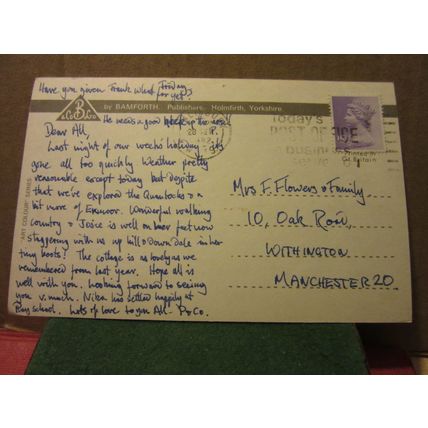 Have you given Frank what Friday's
for yet?
He needs a good kick up the arse!
B
& Co Ltd
by BAMFORTH. Publishers, Holmfirth, Yorkshire.
Today's
POST OFFICE
Dear All,
Last night of our weeks' holiday - it's
gone all too quickly. Weather pretty
reasonable except today but despite
that we've explored the Quantocks & a
bit more of Exmoor. Wonderful walking
country & Josie is well on her feet now
staggering with us up hill & down dale in her
tiny boots! The cottage is as lovely as we
remembered from last year. Hope all is
well with you. Looking forward to seeing
you v. much. Nika has settled happily at
Play school. Lots of love to you All - P & Co.
"ART COLOUR" SERIES
Printed in
Gt. Britain
Mrs F. Flowers & Family
10, Oak Road,
WITHINGTON
MANCHESTER 20.